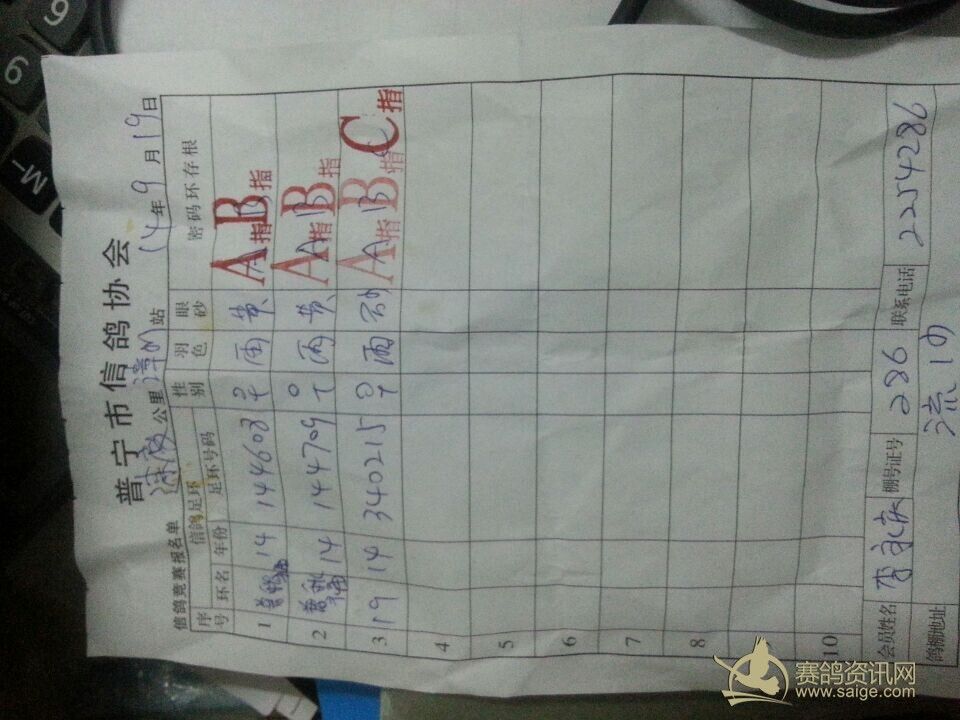 普宁市信鸽协会
信鸽竞赛报名单 公里 站 14年9月19日
序号 信鸽足环 性别 羽色 眼砂 密码环存根
环名 年份 足环号码
1 14 144603 雨 黄 A指B指
2 14 144709 雨 黄 A指B指
3 19 14 340215 雨 砂 A指B指C指
4
5
6
7
8
10
会员姓名 李 棚号证号 286 联系电话 2254286
鸽棚地址 流
9
6
M-
赛鸽资讯网
www.saige.com